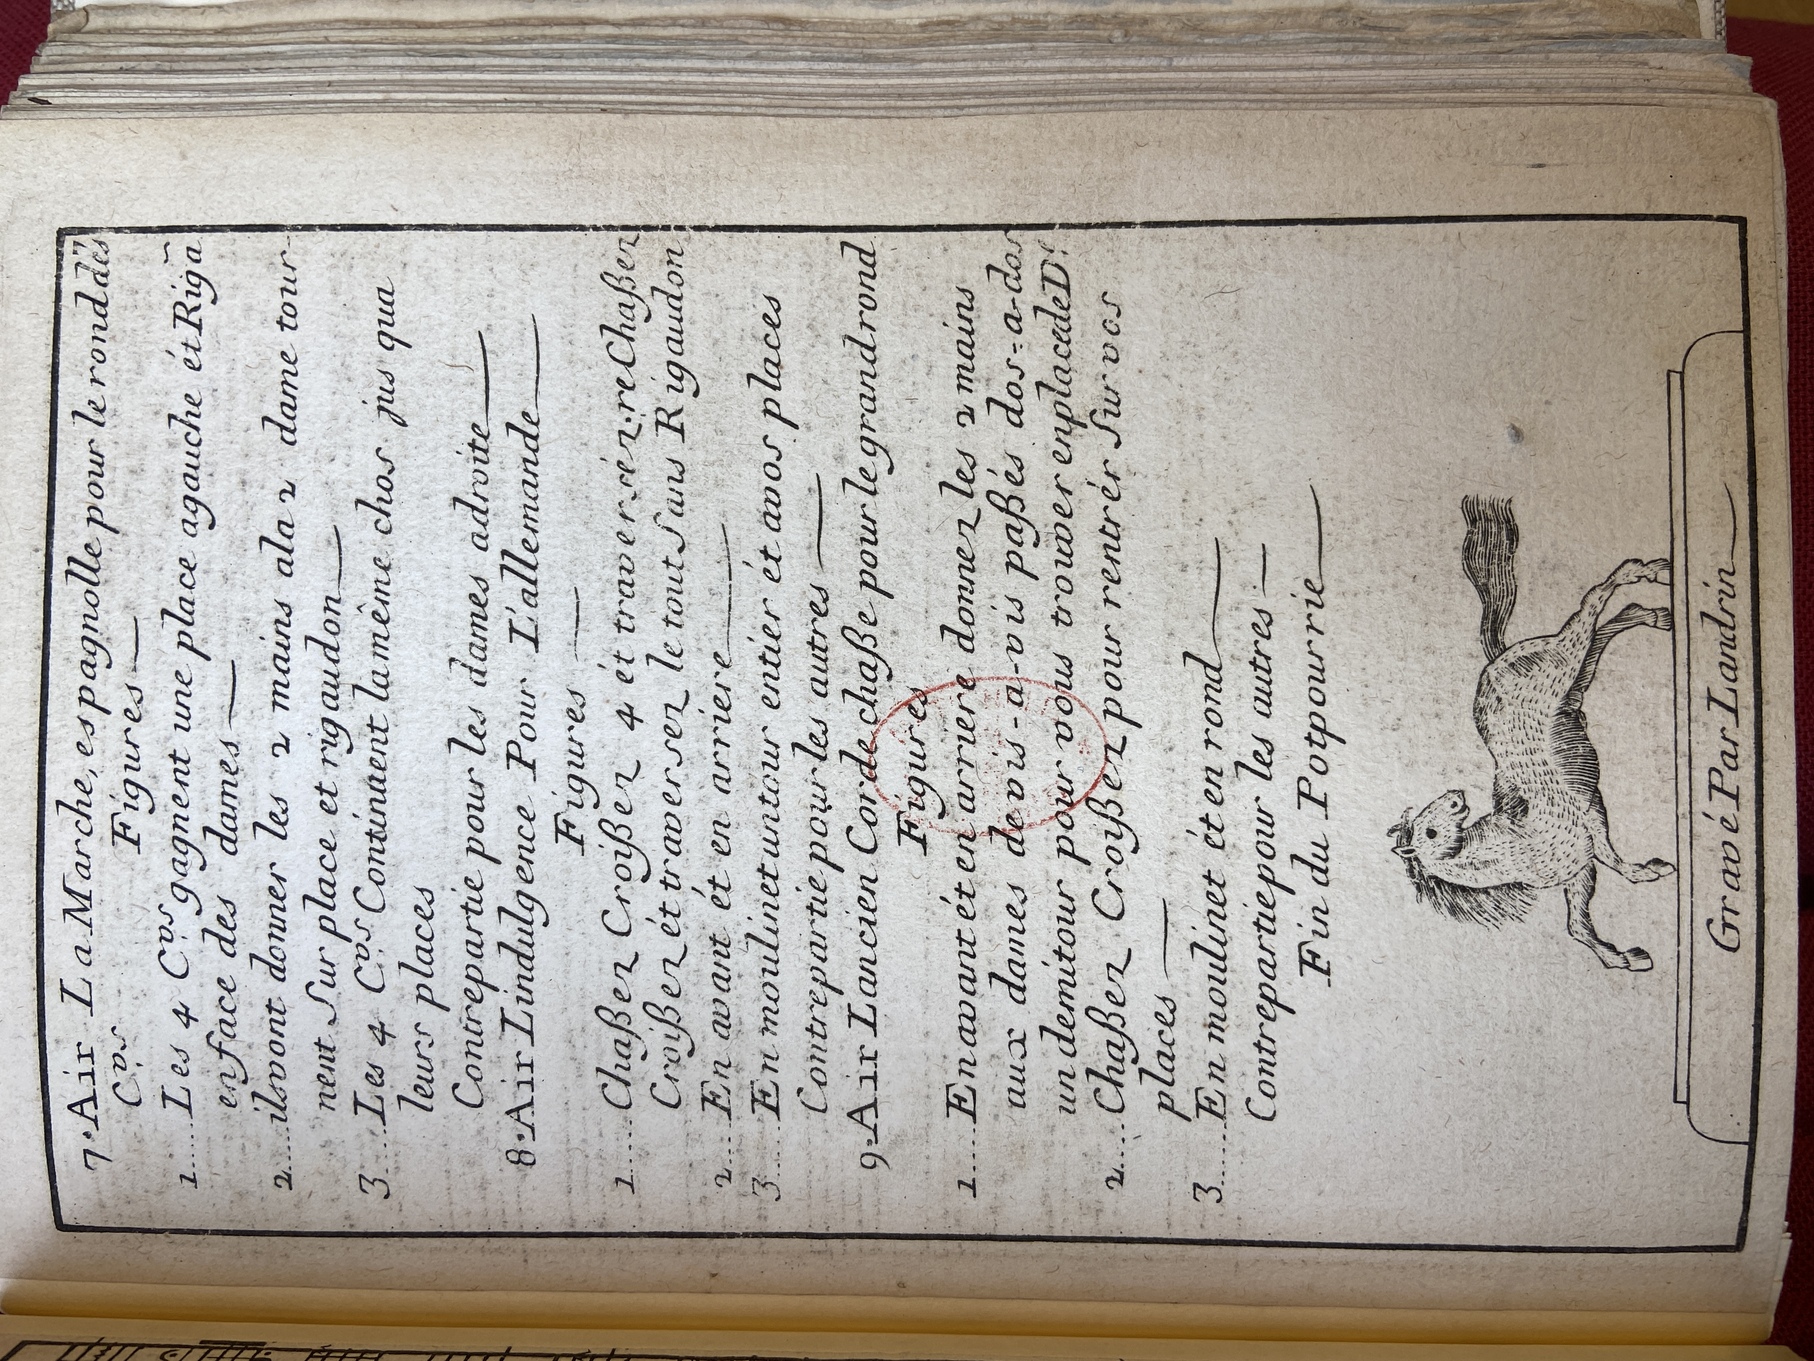 7. Air La Marche, espagnolle pour le rond dés
C.vs Figures
1.... Les 4 C.vs gagnent une place agauche ét Rig~a
enface des dames
2.... ilsvont donner les 2 mains ala 2 dame tour-
nent Sur place et rigaudon
3... Les 4 C.vs Continüent la même chos jus qua
leurs places
Contrepartie pour les dames adroite
8. Air Lindulgence Pour L'allemande
Figures
1.... Chaßez Croißez 4 ét traverséz. re Chaßez
Croißez ét traversez le tout Sans Rigaudon
2... En avant ét en arriere
3... En moulinet untour entier ét avos places
Contrepartie pour les autres
9. Air Lancien Corde chaße pour le grand rond
Figures
1.... En avant ét en arriere donnez les 2 mains
aux dames de vis-a-vis paßés dos=a-dos
un demitour pour vous trouver enplacede D.e
2.... Chaßez Croißez pour rentrér Sur vos
places
3.... En moulinet ét en rond
Contrepartie pour les autres
Fin du Potpourrie
Gravé Par Landrin